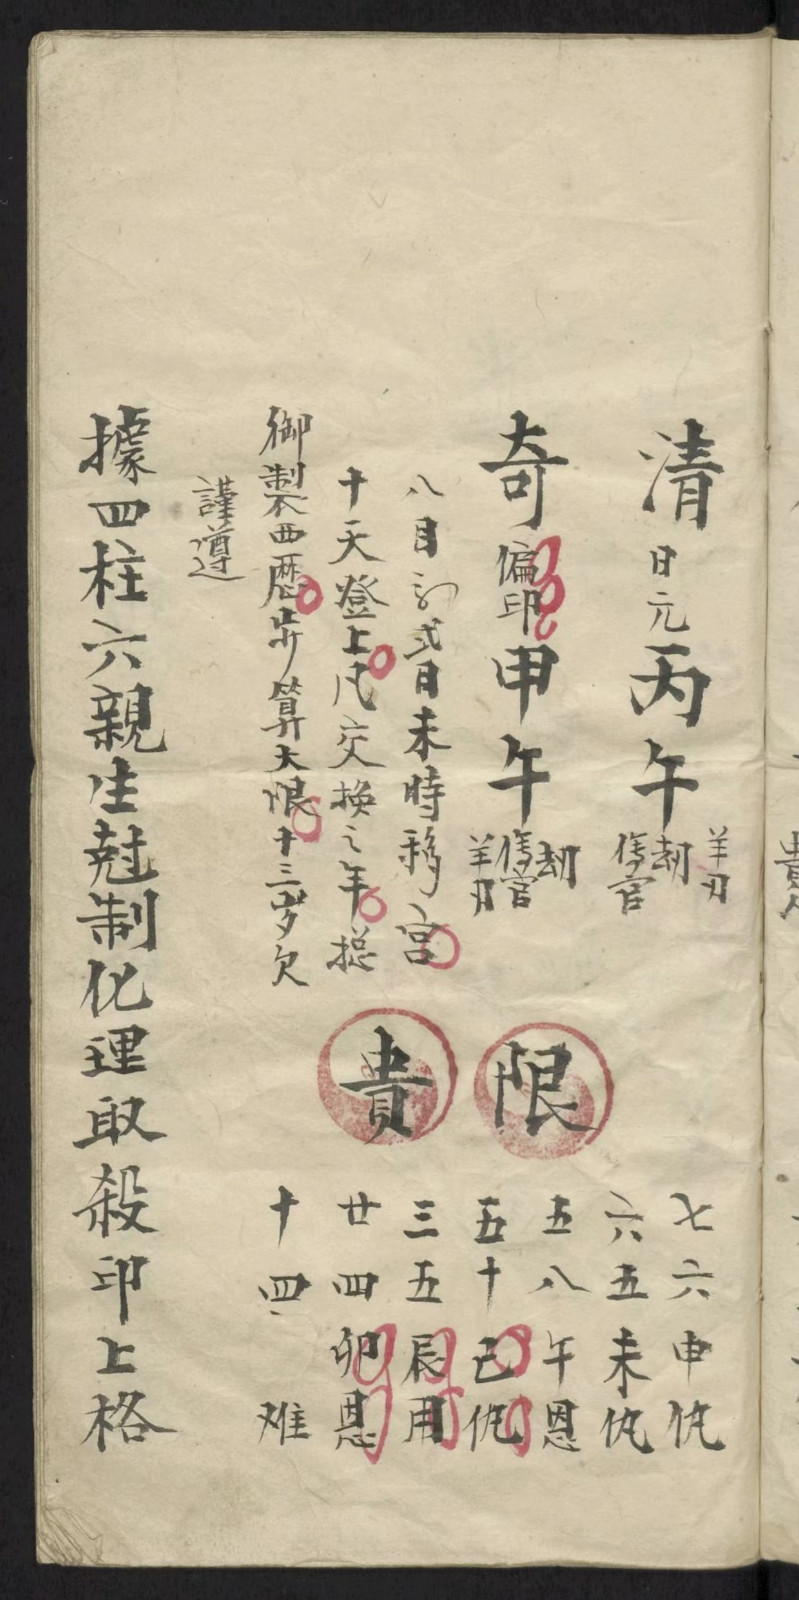 清 日元 丙午 羊刃 劫 傷官
奇 偏印 甲午 劫 傷官 羊刃
八月初弍日未時移宮
十天登上凡交換之年捴
御製西曆步算大限十三岁欠
謹遵
限
貴
七六申仇
六五未仇
五八午恩
五十巳仇
三五辰用
廿四卯恩
十四难
據四柱六親生尅制化理取殺印上格